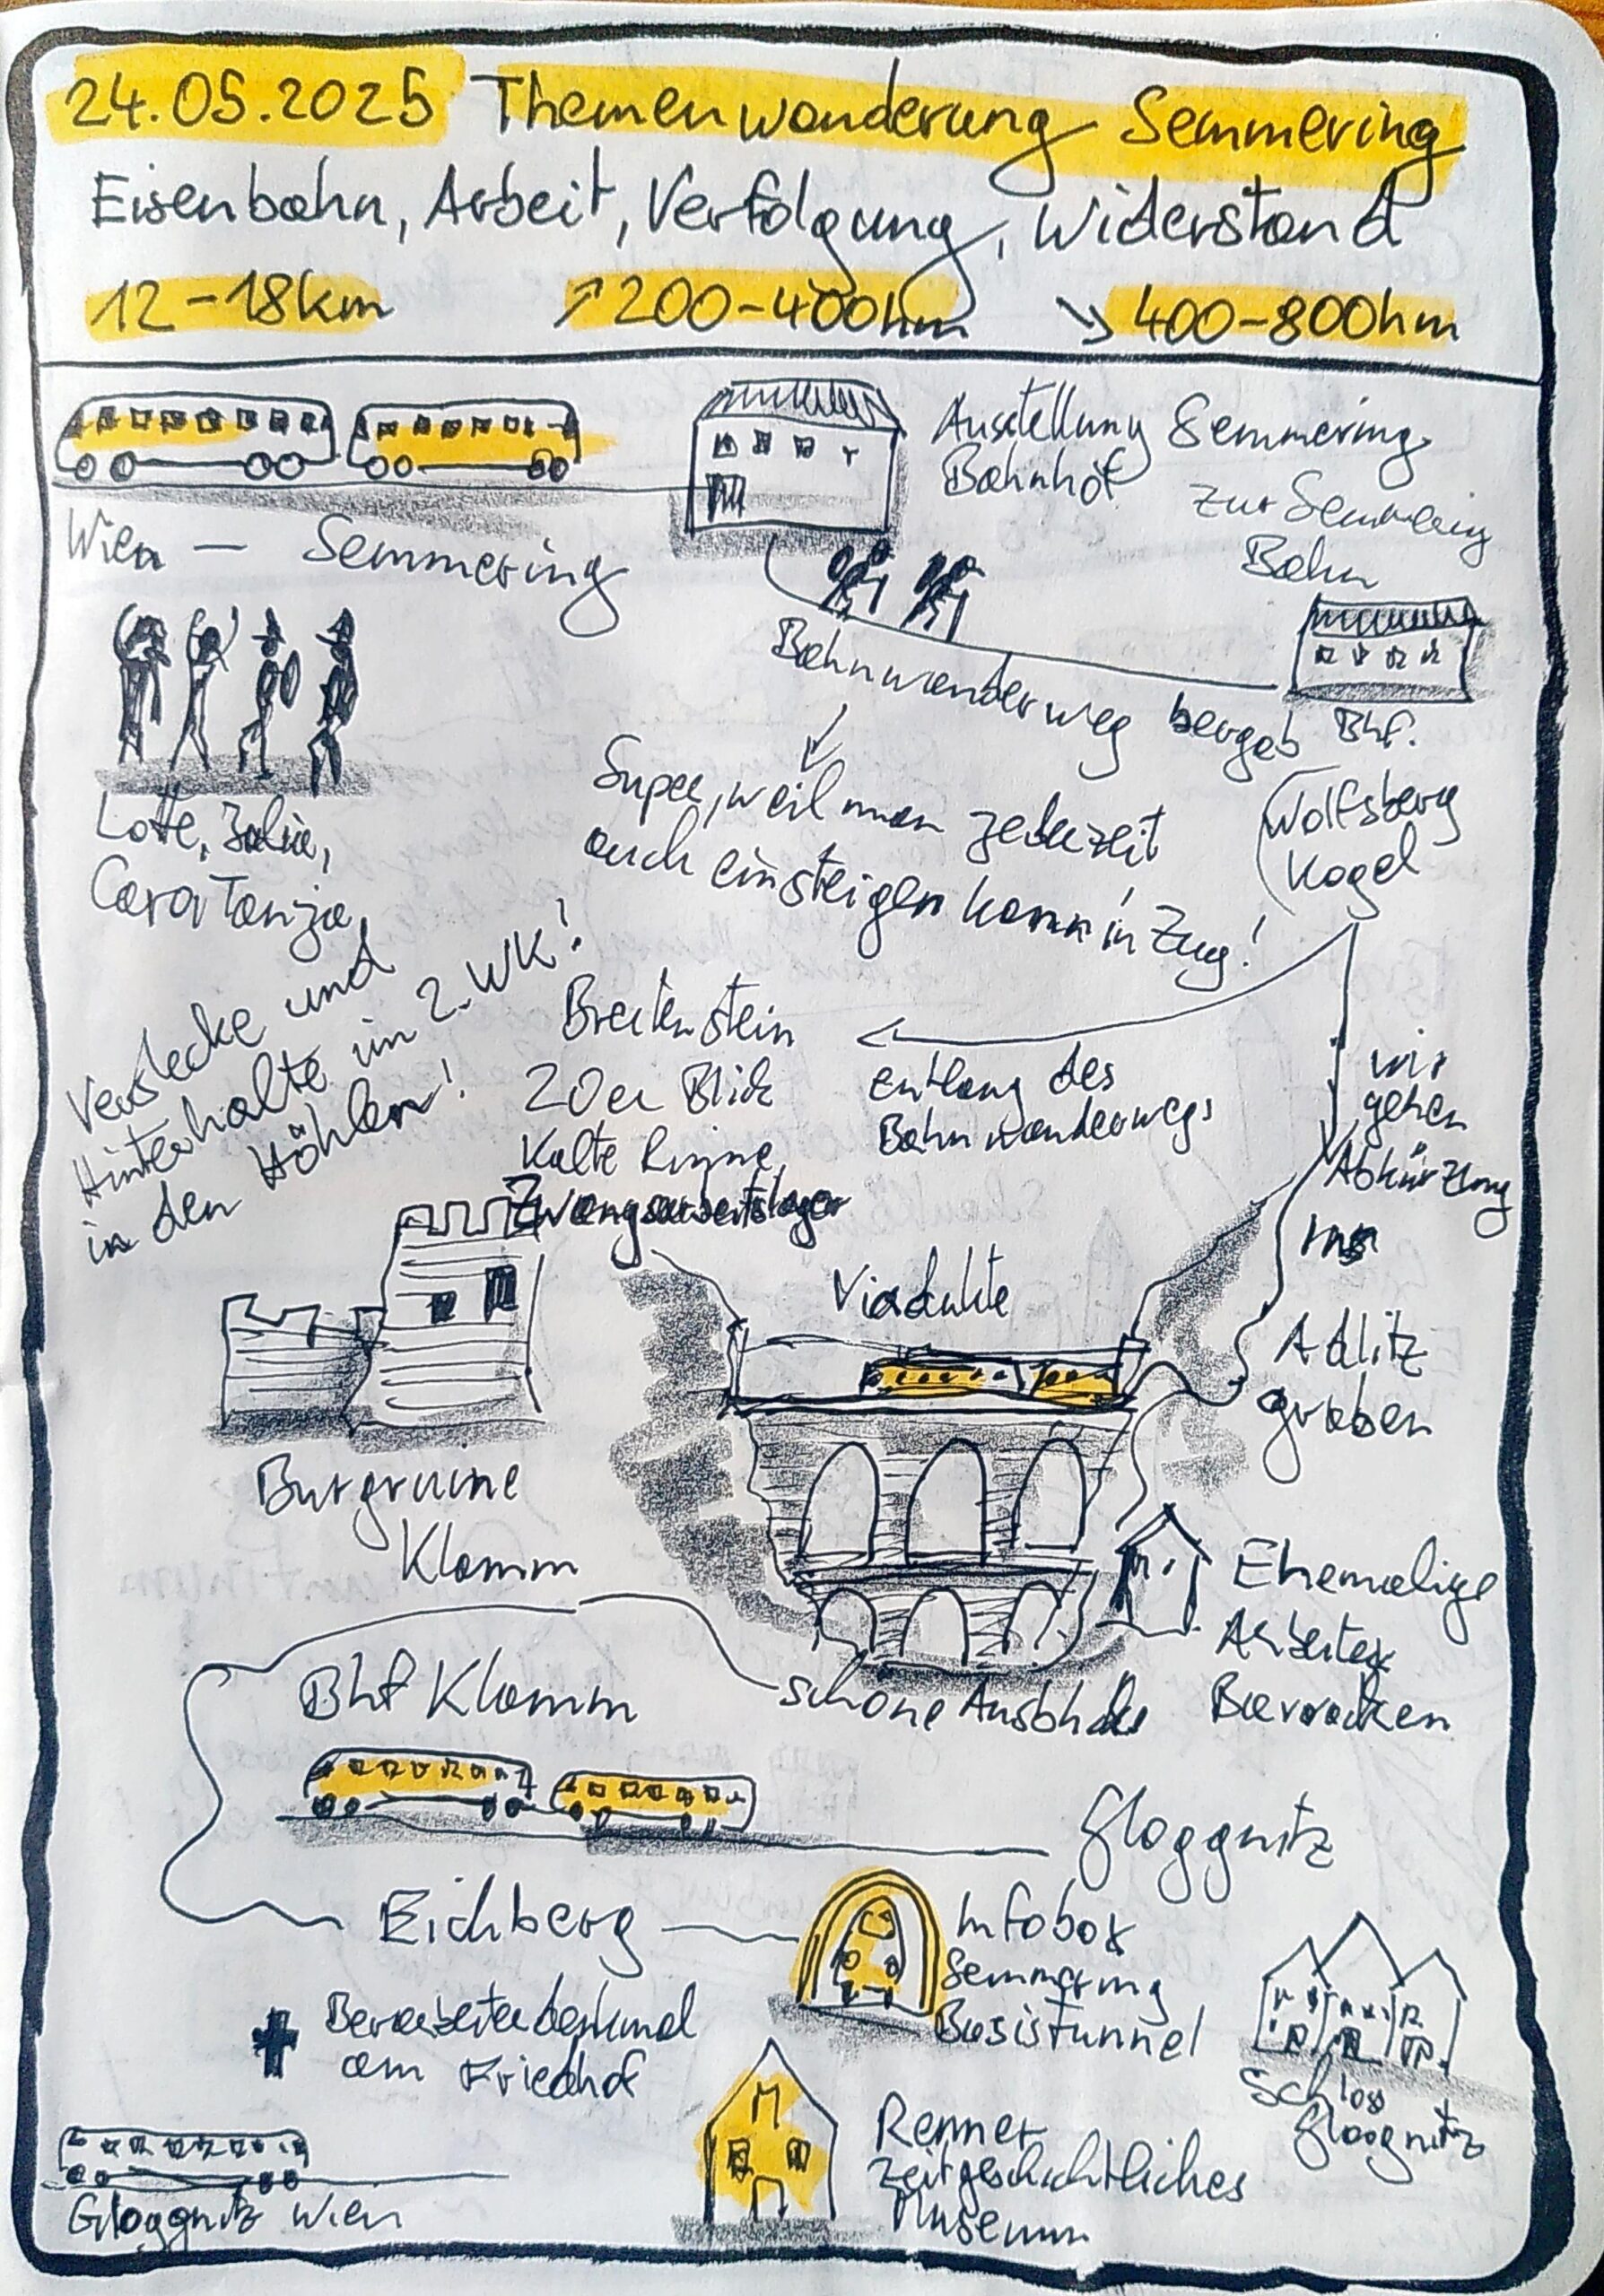 24.05.2025 Themenwanderung Semmering
Eisenbahn, Arbeit, Verfolgung, Widerstand
12-18km ↗200-400hm ↘400-800hm
Ausstellung Semmering
Bahnhof
zur Semmering
Bahn
Wien - Semmering
Bahnwanderweg bergab Bhf.
Wolfsberg
Kogel
Super, weil man jederzeit
auch einsteigen kann in Zug!
Lotte, Julia,
Cara, Tanja
Verstecke und
Hinterhalte im 2. WK!
in den Höhlen!
Breitenstein
20er Blick
Kalte Rinne,
Zwangsarbeitslager
entlang des
Bahnwanderwegs
wir
gehen
Abkürzung
ins
Adlitz
graben
Viadukte
Burgruine
Klamm
Ehemalige
Arbeiter
Baracken
Bhf Klamm
schöne Ausblicke
Gloggnitz
Eichberg
Infobox
Semmering
Basistunnel
am Friedhof
Schloss
Gloggnitz
Renner
zeitgeschichtliches
Museum
Gloggnitz Wien